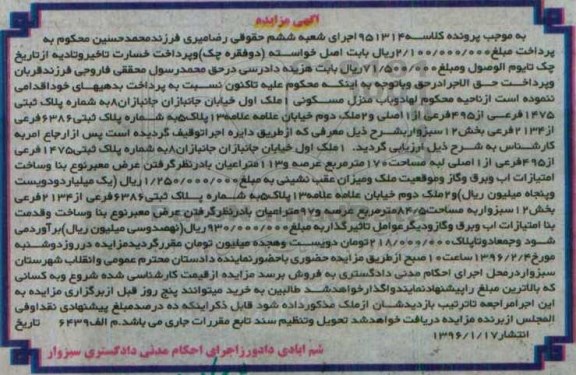 آگهی مزایده
به موجب پرونده کلاسه ۹۵۱۳۱۴ اجرای شعبه ششم حقوقی رضا میری فرزند محمدحسین محکوم به
پرداخت مبلغ ۲/۱۰۰/۰۰۰/۰۰۰ ریال بابت اصل خواسته (دوفقره چک) وپرداخت خسارت تاخیروتادیه ازتاریخ
چک تایوم الوصول ومبلغ ۷۱/۵۰۰/۰۰۰ ریال بابت هزینه دادرسی درحق محمدرسول محققی فاروجی فرزندقربان
وپرداخت حق الاجرا درحق وباتوجه به اینکه محکوم علیه تاکنون نسبت به پرداخت بدهیهای خوداقدامی
ننموده است ازناحیه محکوم لهادوباب منزل مسکونی ۱ملک اول خیابان جانبازان جانبازان۸به شماره پلاک ثبتی
۱۴۷۵فرعی از۴۹۵فرعی از۱اصلی و۲ملک دوم خیابان علامه علامه۱۳پلاک۵به شماره پلاک ثبتی۶۳۸۶فرعی
از۲۱۳۴فرعی بخش۱۲سبزواربشرح ذیل معرفی که ازطریق دایره اجراتوقیف گردیده است پس ازارجاع امربه
کارشناس به شرح ذیل ارزیابی گردید. ۱ملک اول خیابان جانبازان جانبازان۸به شماره پلاک ثبتی۱۴۷۵فرعی
از۴۹۵فرعی از۱اصلی لبه مساحت۱۷۰مترمربع عرصه و۱۱۳متراعیان بادرنظرگرفتن عرض معبرنوع بنا وساخت
امتیازات اب وبرق وگاز وموقعیت ملک ومیزان عقب نشینی به مبلغ۱/۲۵۰/۰۰۰/۰۰۰ریال (یک میلیاردودویست
وپنجاه میلیون ریال)و۲ملک دوم خیابان علامه علامه۱۳پلاک۵به شماره پلاک ثبتی۶۳۸۶فرعی از۲۱۳۴فرعی
بخش۱۲سبزواربه مساحت۸۴/۵مترمربع عرصه و۹۷متراعیان بادرنظرگرفتن عرض معبرنوع بنا وساخت وقدمت
بنا امتیازات اب وبرق وگازودیگرعوامل تاثیرگذاربه مبلغ۹۳۰/۰۰۰/۰۰۰ریال(نهصدوسی میلیون ریال)برآوردمی
شود وجمعادوتاپلاک۲۱۸/۰۰۰/۰۰۰تومان دویست وهجده میلیون تومان مقررگردیدمزایده درروزدوشنبه
مورخ۱۳۹۶/۲/۴ساعت۱۰صبح ازطریق مزایده حضوری باحضورنماینده دادستان محترم عمومی وانقلاب شهرستان
سبزواردرمحل اجرای احکام مدنی دادگستری به فروش برسد مزایده ازقیمت کارشناسی شده شروع وبه کسانی
که بالاترین مبلغ راپیشنهادنمایندواگذارخواهدشد طالبین به خرید میتوانند پنج روز قبل ازبرگزاری مزایده به
این اجرامراجعه تاترتیب بازدیدشان ازملک مذکورداده شود قابل ذکراینکه ده درصدمبلغ پیشنهادی نقداوفی
المجلس ازبرنده مزایده دریافت خواهدشد تحویل وتنظیم سند تابع مقررات جاری می باشد.م الف۶۴۳۹ تاریخ
انتشار۱۳۹۶/۱/۱۷
شم ابادی دادورزاجرای احکام مدنی دادگستری سبزوار